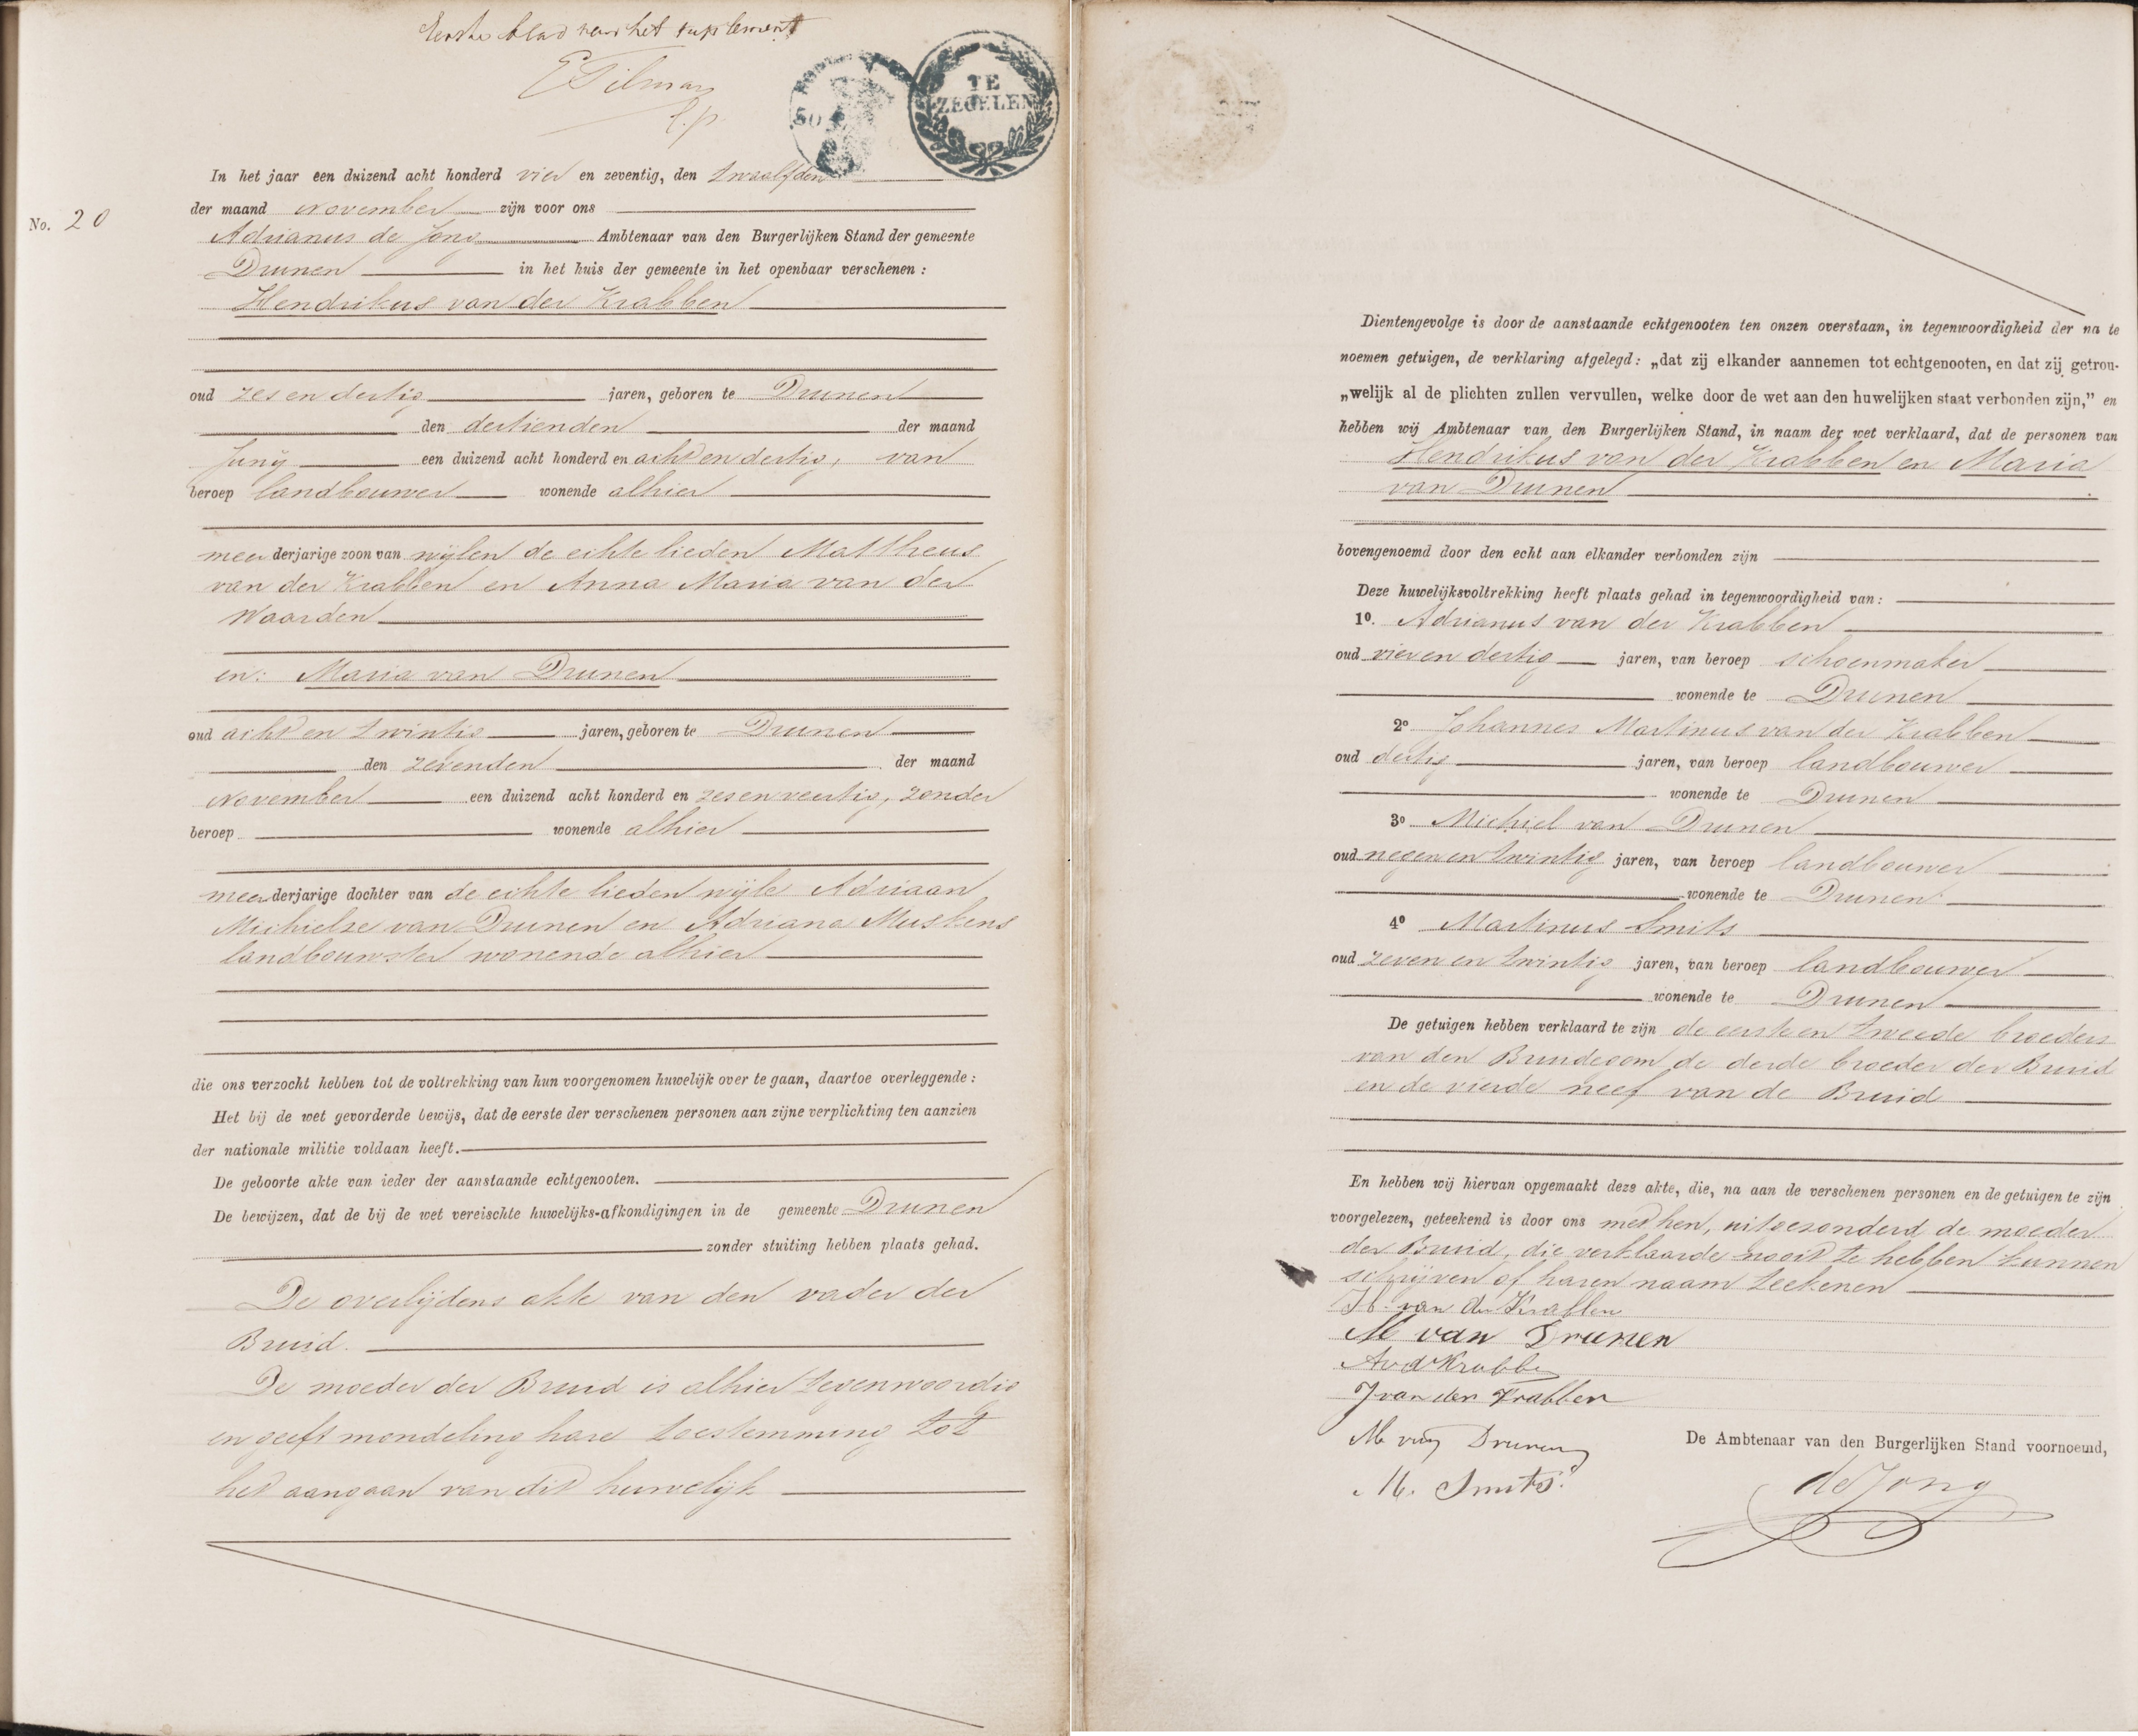 Eerste blad van het suplement
ETilman
l.p.
TE
ZEGELEN
50
In het jaar een duizend acht honderd vier en zeventig, den twaalfden
der maand November zijn voor ons
No. 20
Adrianus de Jong Ambtenaar van den Burgerlijken Stand der gemeente
Drunen in het huis der gemeente in het openbaar verschenen:
Hendrikus van der Krabben
oud zes en dertig jaren, geboren te Drunen
den dertienden der maand
Junij een duizend acht honderd en acht en dertig, van
beroep landbouwer wonende alhier
meerderjarige zoon van wijlen de echte lieden Mattheus
van der Krabben en Anna Maria van der
Waarden
en: Maria van Drunen
oud acht en twintig jaren, geboren te Drunen
den zevenden der maand
November een duizend acht honderd en zes en veertig, zonder
beroep wonende alhier
meerderjarige dochter van de echte lieden wijle Adriaan
Michielse van Drunen en Adriana Muskens
landbouwster wonende alhier
die ons verzocht hebben tot de voltrekking van hun voorgenomen huwelijk over te gaan, daartoe overleggende:
Het bij de wet gevorderde bewijs, dat de eerste der verschenen personen aan zijne verplichting ten aanzien
der nationale militie voldaan heeft.
De geboorte akte van ieder der aanstaande echtgenooten.
De bewijzen, dat de bij de wet vereischte huwelijks-afkondigingen in de gemeente Drunen
zonder stuiting hebben plaats gehad.
De overlijdens akte van den vader der
Bruid.
De moeder der Bruid is alhier tegenwoordig
en geeft mondeling hare toestemming tot
het aangaan van dit huwelijk
Dientengevolge is door de aanstaande echtgenooten ten onzen overstaan, in tegenwoordigheid der na te
noemen getuigen, de verklaring afgelegd: „dat zij elkander aannemen tot echtgenooten, en dat zij getrou-
„welijk al de plichten zullen vervullen, welke door de wet aan den huwelijken staat verbonden zijn,” en
hebben wij Ambtenaar van den Burgerlijken Stand, in naam der wet verklaard, dat de personen van
Hendrikus van der Krabben en Maria
van Drunen
bovengenoemd door den echt aan elkander verbonden zijn
Deze huwelijksvoltrekking heeft plaats gehad in tegenwoordigheid van:
1º. Adrianus van der Krabben
oud vier en dertig jaren, van beroep schoenmaker
wonende te Drunen
2º Johannes Martinus van der Krabben
oud dertig jaren, van beroep landbouwer
wonende te Drunen
3º Michiel van Drunen
oud negen en twintig jaren, van beroep landbouwer
wonende te Drunen
4º Martinus Smits
oud zeven en twintig jaren, van beroep landbouwer
wonende te Drunen
De getuigen hebben verklaard te zijn de eerste en tweede broeders
van den Bruidegom de derde broeder der Bruid
en de vierde neef van de Bruid
En hebben wij hiervan opgemaakt deze akte, die, na aan de verschenen personen en de getuigen te zijn
voorgelezen, geteekend is door ons met hen, uitgezonderd de moeder
der Bruid, die verklaarde nooit te hebben kunnen
schrijven of haren naam teekenen
H. van der Krabben
M van Drunen
AvdKrabben
J van der Krabben
M van Drunen
M. Smits
De Ambtenaar van den Burgerlijken Stand voornoemd,
de Jong